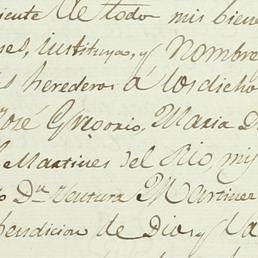 ciente de todo mis biene
ses, instituyo, y Nombro
s herederos á los dicho
José Gregorio, Maria D
Martines del Rio, mis
Dn Ventura Martines
bendicion de Dios y la